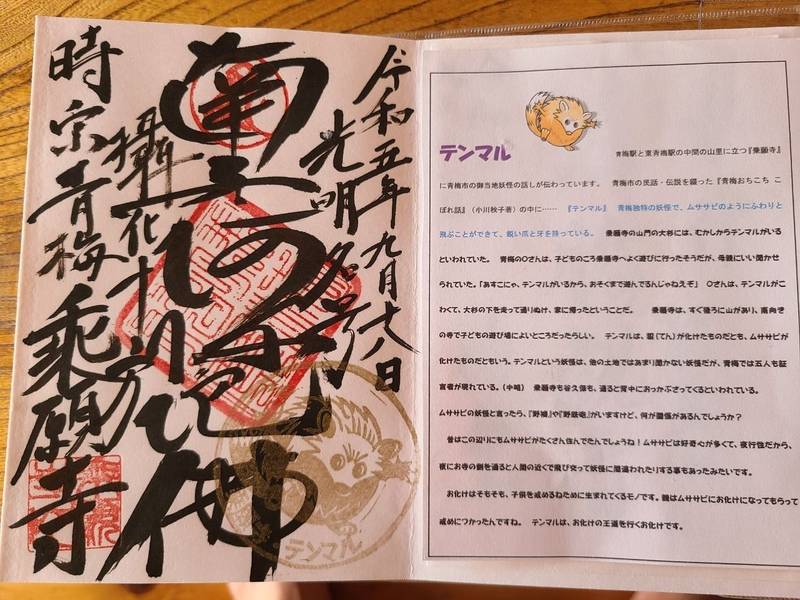 令和五年九月十八日
光明名号
南無阿弥陀佛
攝化十方
時宗青梅 乗願寺
テンマル
テンマル 青梅駅と東青梅駅の中間の山里に立つ『乗願寺』
に青梅市の御当地妖怪の話しが伝わっています。 青梅市の民話・伝説を綴った『青梅おちこち こ
ぼれ話』（小川秋子著）の中に…… 『テンマル』 青梅独特の妖怪で、ムササビのようにふわりと
飛ぶことができて、鋭い爪と牙を持っている。 乗願寺の山門の大杉には、むかしからテンマルがいる
といわれていた。 青梅のOさんは、子どものころ乗願寺へよく遊びに行ったそうだが、母親にいい聞かせ
られていた。「あすこにゃ、テンマルがいるから、おそくまで遊んでるんじゃねえぞ」 Oさんは、テンマルがこ
わくて、大杉の下を走って通りぬけ、家に帰ったということだ。 乗願寺は、すぐ後ろに山があり、南向き
の寺で子どもの遊び場によいところだったらしい。 テンマルは、貂（てん）が化けたものだとも、ムササビが
化けたものだともいう。テンマルという妖怪は、他の土地ではあまり聞かない妖怪だが、青梅では五人も証
言者が現れている。（中略） 乗願寺も谷久保も、通ると背中におっかぶさってくるといわれている。
ムササビの妖怪と言ったら、『野衾』や『野鉄砲』がいますけど、何か関係があるんでしょうか？
昔はこの辺りにもムササビがたくさん住んでたんでしょうね！ムササビは好奇心が多くて、夜行性だから、
夜にお寺の側を通ると人間の近くで飛び交って妖怪に間違われたりする事もあったみたいです。
お化けはそもそも、子供を戒めるために生まれてくるモノです。親はムササビにお化けになってもらって
戒めにつかったんですね。 テンマルは、お化けの王道を行くお化けです。